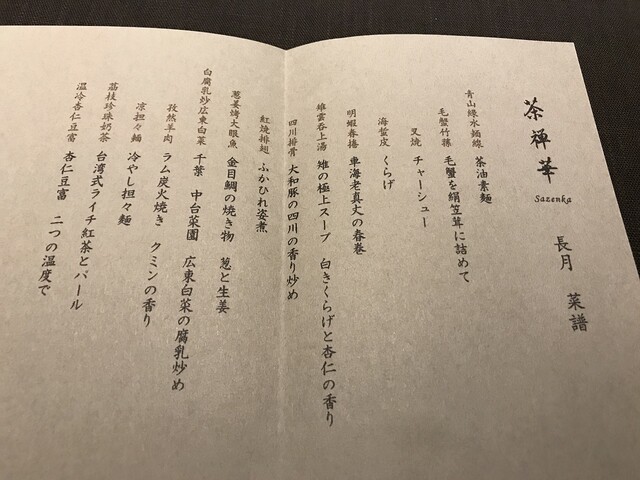 茶禅華
Sazenka
長月 菜譜
青山緑水麺線 茶油素麺
毛蟹竹蓀 毛蟹を絹笠茸に詰めて
叉焼 チャーシュー
海蜇皮 くらげ
明蝦春捲 車海老真丈の春巻
雉雲呑上湯 雉の極上スープ 白きくらげと杏仁の香り
四川排骨 大和豚の四川の香り炒め
紅焼排翅 ふかひれ姿煮
葱姜焗大眼魚 金目鯛の焼き物 葱と生姜
白腐乳炒広東白菜 千葉 中台菜園 広東白菜の腐乳炒め
孜然羊肉 ラム炭火焼き クミンの香り
涼担々麺 冷やし担々麺
荔枝珍珠奶茶 台湾式ライチ紅茶とパール
温冷杏仁豆富 杏仁豆富 二つの温度で